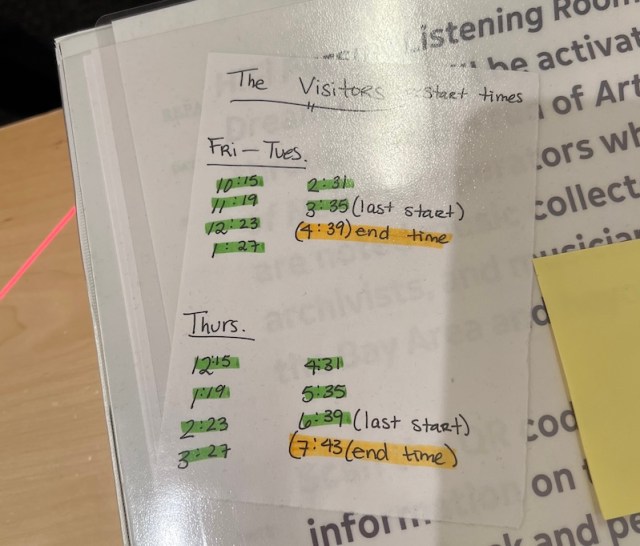 The Visitors start times
Fri – Tues.
10:15 2:31
11:19 3:35 (last start)
12:23 (4:39) end time
1:27
Thurs.
12:15 4:31
1:19 5:35
2:23 6:39 (last start)
3:27 (7:43 (end time)
Listening
be activat
of Art
ors wh
collect
archivists, and musician
the Bay Area and
cod
information on
and pe